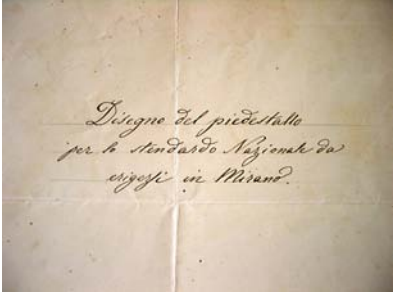 Disegno del piedestallo
per lo stendardo Nazionale da
erigersi in Mirano.